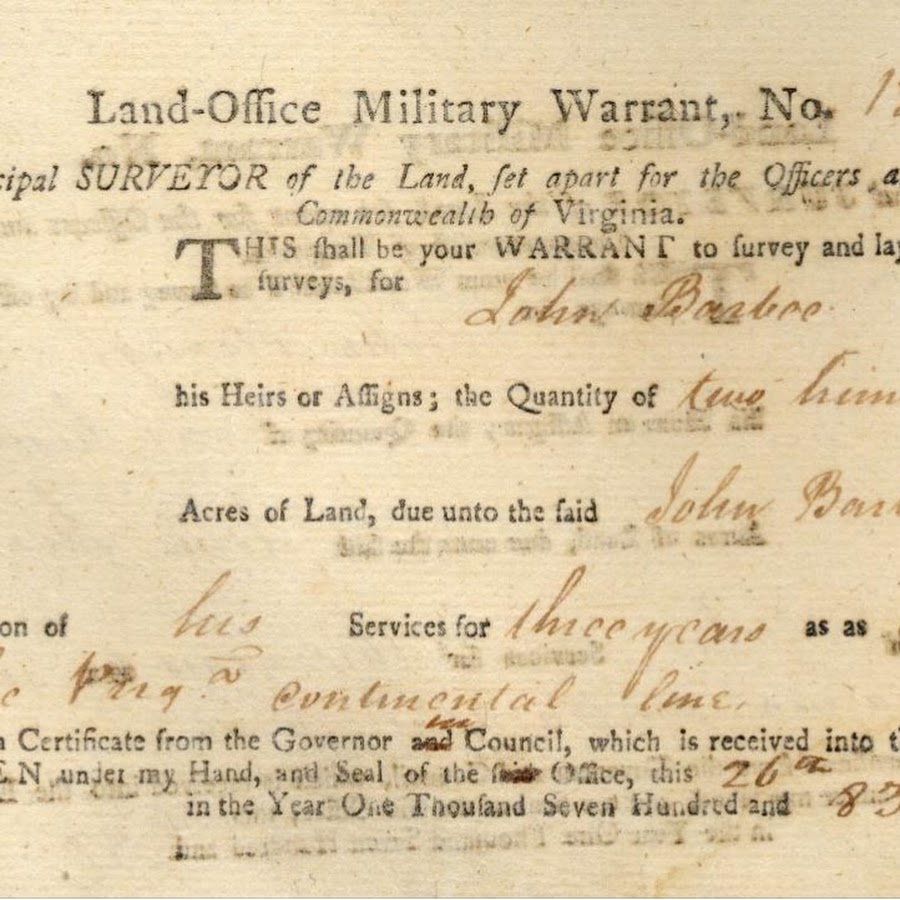 Land-Office Military Warrant, No. 1
cipal SURVEYOR of the Land, ſet apart for the Officers a
Commonwealth of Virginia.
THIS ſhall be your WARRANT to ſurvey and lay
ſurveys, for
John Barbee
his Heirs or Aſſigns; the Quantity of two hun
Acres of Land, due unto the ſaid John Bar
on of his Services for three years as as
Virgᵃ continental line.
a Certificate from the Governor in Council, which is received into t
EN under my Hand, and Seal of the Office, this 26th
in the Year One Thouſand Seven Hundred and 83